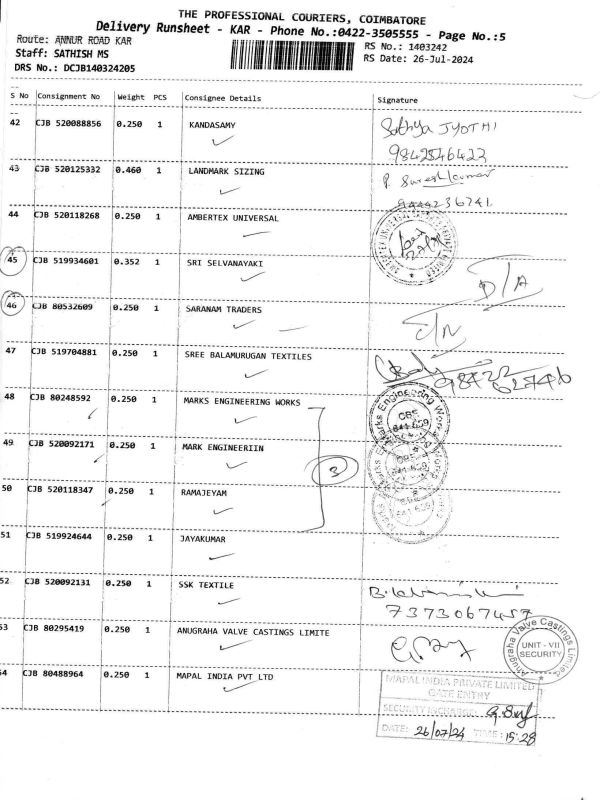 THE PROFESSIONAL COURIERS, COIMBATORE
Delivery Runsheet - KAR - Phone No.:0422-3505555 - Page No.:5
Route: ANNUR ROAD KAR
RS No.: 1403242
Staff: SATHISH MS
RS Date: 26-Jul-2024
DRS No.: DCJB140324205
S No Consignment No Weight PCS Consignee Details Signature
42 CJB 520088856 0.250 1 KANDASAMY Sathya JYOTHI
9842546422
43 CJB 520125332 0.460 1 LANDMARK SIZING P. Sureshkumar
9444236741
44 CJB 520118268 0.250 1 AMBERTEX UNIVERSAL
45 CJB 519934601 0.352 1 SRI SELVANAYAKI D/A
46 CJB 80532609 0.250 1 SARANAM TRADERS
47 CJB 519704881 0.250 1 SREE BALAMURUGAN TEXTILES
98422 62746
48 CJB 80248592 0.250 1 MARKS ENGINEERING WORKS
Marks Engineering Works
49 CJB 520092171 0.250 1 MARK ENGINEERIIN
3
50 CJB 520118347 0.250 1 RAMAJEYAM
51 CJB 519924644 0.250 1 JAYAKUMAR
52 CJB 520092131 0.250 1 SSK TEXTILE
7373067457
53 CJB 80295419 0.250 1 ANUGRAHA VALVE CASTINGS LIMITE
Anugraha Valve Castings Limited
UNIT - VII
SECURITY
54 CJB 80488964 0.250 1 MAPAL INDIA PVT LTD
MAPAL INDIA PRIVATE LIMITED
GATE ENTRY
SECURITY INCHARGE:
DATE: 26/07/24 TIME: 15:28